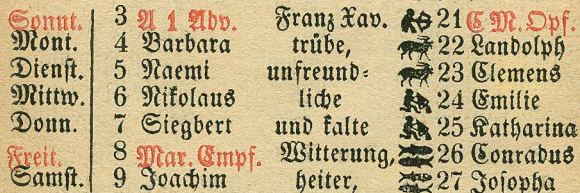 Sonnt. 3 A 1 Adv. Franz Xav. 21 C M. Opf.
Mont. 4 Barbara trübe, 22 Landolph
Dienst. 5 Naemi unfreund- 23 Clemens
Mittw. 6 Nikolaus liche 24 Emilie
Donn. 7 Siegbert und kalte 25 Katharina
Freit. 8 Mar. Empf. Witterung, 26 Conradus
Samst. 9 Joachim heiter, 27 Josopha